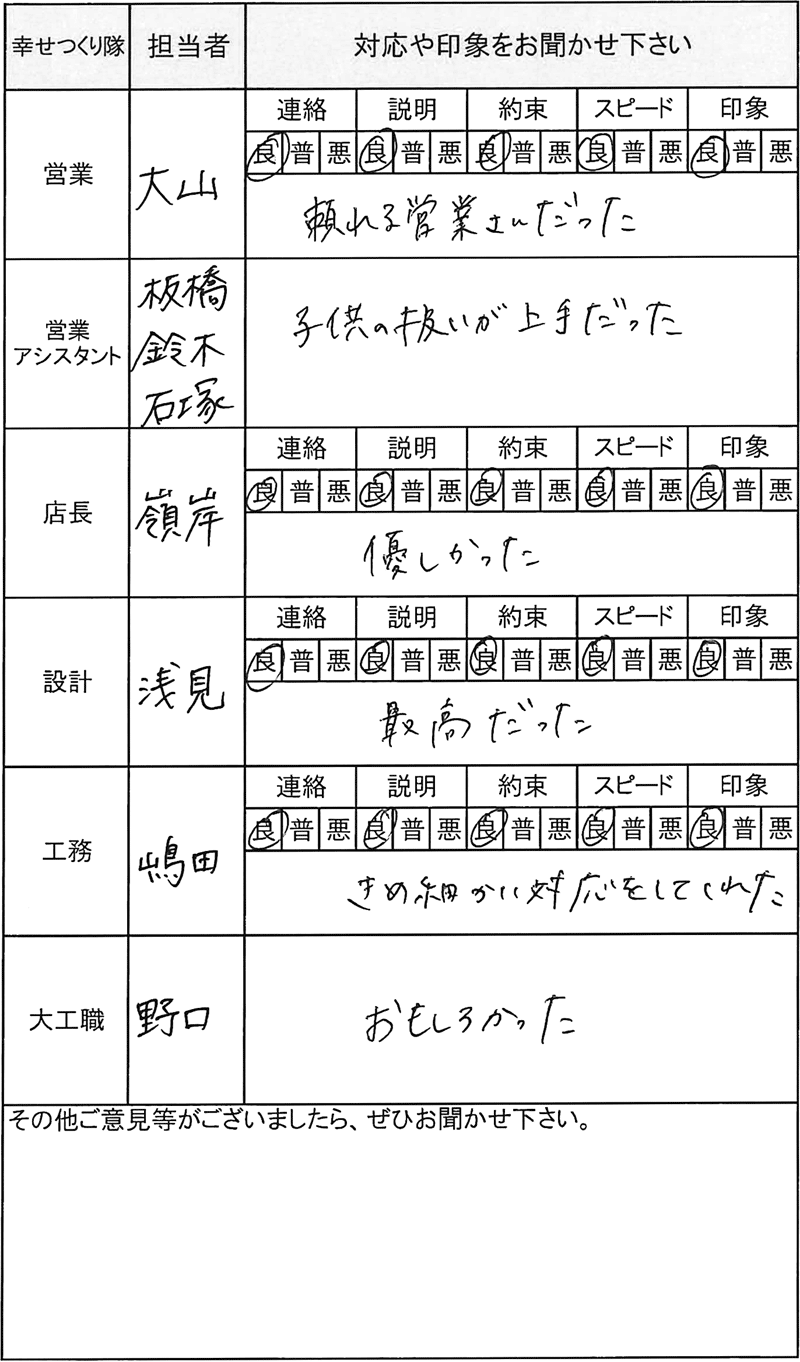 幸せつくり隊 担当者 対応や印象をお聞かせ下さい
連絡 説明 約束 スピード 印象
良 普 悪 良 普 悪 良 普 悪 良 普 悪 良 普 悪
営業 大山
頼れる営業さんだった
板橋
営業
アシスタント
鈴木
石塚
子供の扱いが上手だった
連絡 説明 約束 スピード 印象
良 普 悪 良 普 悪 良 普 悪 良 普 悪 良 普 悪
店長 嶺岸
優しかった
連絡 説明 約束 スピード 印象
良 普 悪 良 普 悪 良 普 悪 良 普 悪 良 普 悪
設計 浅見
最高だった
連絡 説明 約束 スピード 印象
良 普 悪 良 普 悪 良 普 悪 良 普 悪 良 普 悪
工務 嶋田
きめ細かい対応をしてくれた
大工職 野口 おもしろかった
その他ご意見等がございましたら、ぜひお聞かせ下さい。